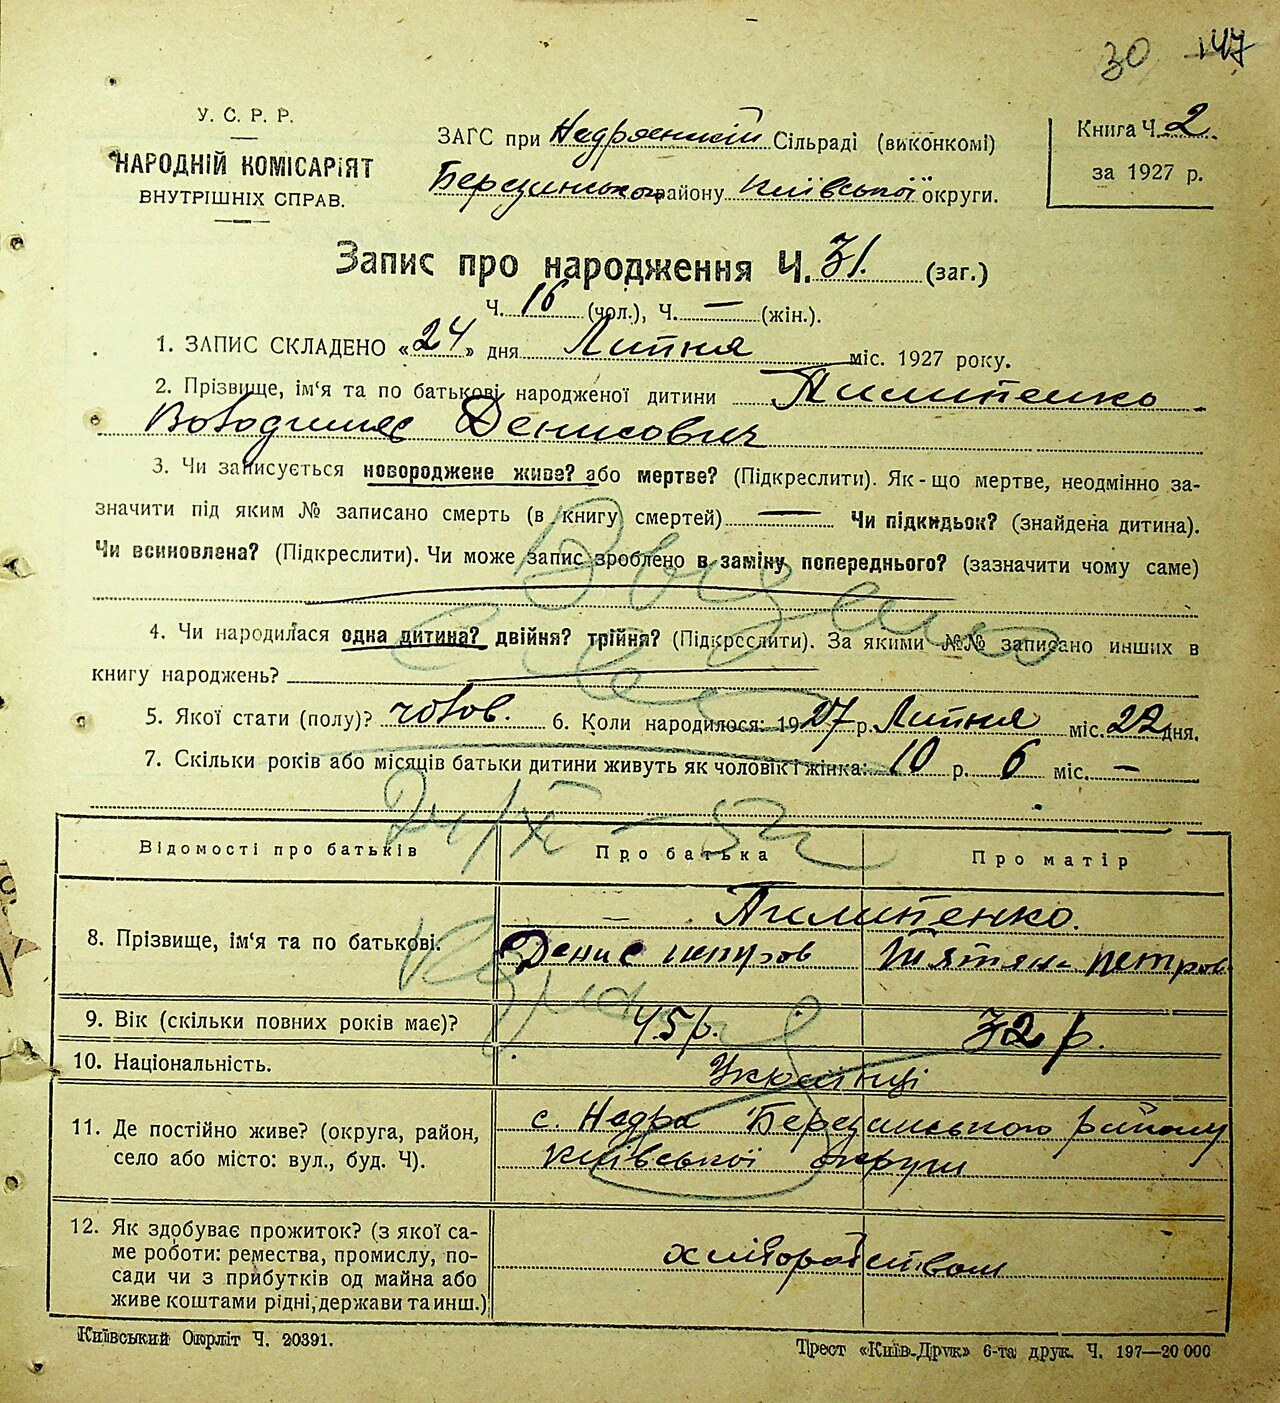 30 147
У. С. Р. Р.
НАРОДНІЙ КОМІСАРІЯТ
ВНУТРІШНІХ СПРАВ.
ЗАГС при Недрянській Сільраді (виконкомі)
Березанського району Київської округи.
Книга Ч. 2.
за 1927 р.
Запис про народження Ч. 31. (заг.)
Ч. 16 (чол.), Ч. — (жін.).
1. ЗАПИС СКЛАДЕНО «24» дня Липня міс. 1927 року.
2. Прізвище, ім‘я та по батькові народженої дитини Пилипенко
Володимир Денисович
3. Чи записується новороджене живе? або мертве? (Підкреслити). Як-що мертве, неодмінно за-
значити під яким № записано смерть (в книгу смертей) — Чи підкидьок? (знайдена дитина).
Чи всиновлена? (Підкреслити). Чи може запис зроблено в заміну попереднього? (зазначити чому саме)
4. Чи народилася одна дитина? двійня? трійня? (Підкреслити). За якими №№ записано инших в
книгу народжень?
5. Якої стати (полу)? чолов. 6. Коли народилося: 1927 р. Липня міс. 22 дня.
7. Скільки років або місяців батьки дитини живуть як чоловік і жінка: 10 р. 6 міс. —
24/XI — 52
Відомості про батьків Про батька Про матір
8. Прізвище, ім‘я та по батькові. Пилипенко.
Денис Петров Тятяна Петров
9. Вік (скільки повних років має)? 45 р. 32 р.
10. Національність. Українці
11. Де постійно живе? (округа, район,
село або місто: вул., буд. Ч).
с. Недра Березанського району
Київської округи
12. Як здобуває прожиток? (з якої са-
ме роботи: ремества, промислу, по-
сади чи з прибутків од майна або
живе коштами рідні, держави та инш.)
хліборобством
Київський Окрліт Ч. 20391.
Трест «Київ-Друк» 6-та друк. Ч. 197—20 000